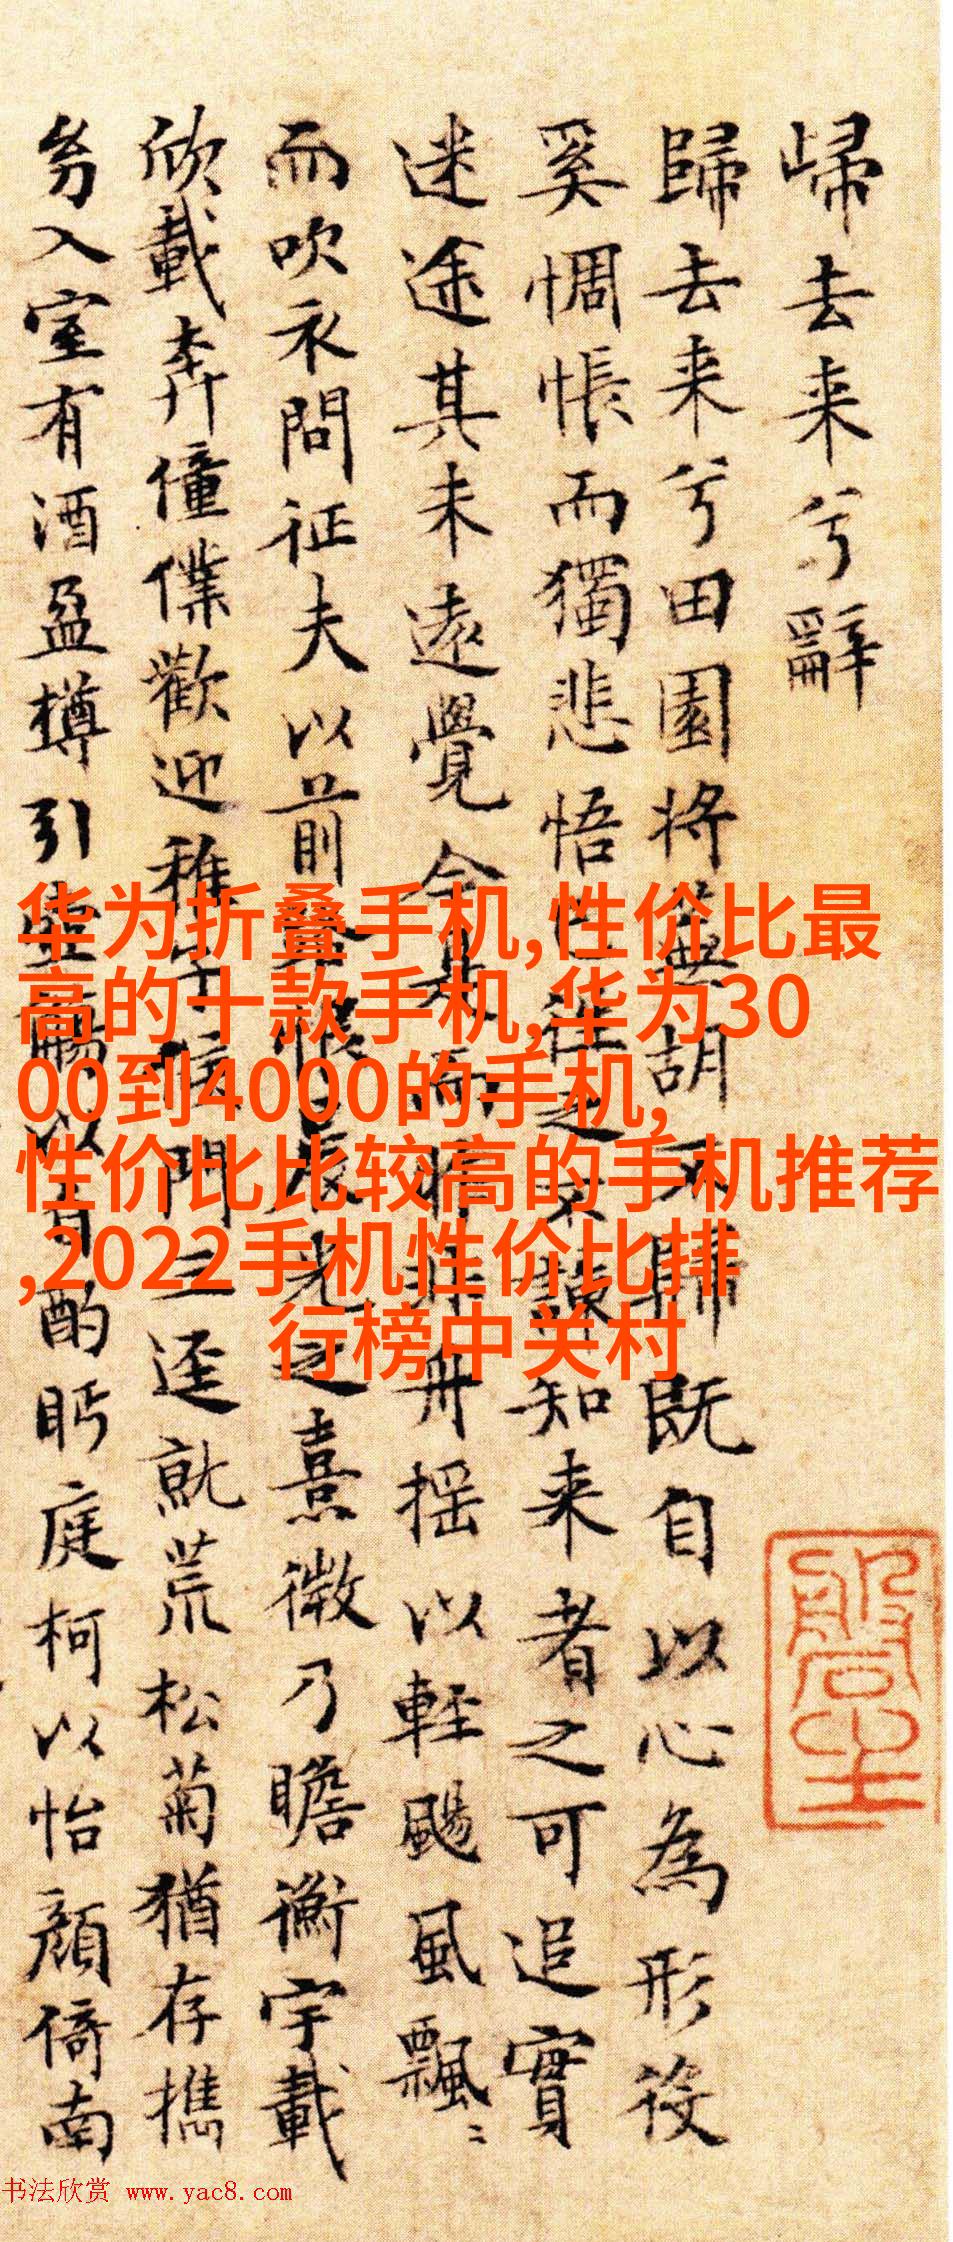 歸去来兮辭
歸去来兮田園將蕪胡不歸既自以心為形役
奚惆悵而獨悲悟已往之不諫知来者之可追實
迷途其未遠覺今是而昨非舟揺以輕颺風飄〻
而吹衣問征夫以前路恨晨光之熹微乃瞻衡宇載
欣載奔僮僕歡迎稚子候門三逕就荒松菊猶存攜
㓜入室有酒盈樽引壺觴以自酌眄庭柯以怡顏倚南
华为折叠手机,性价比最
高的十款手机,华为30
00到4000的手机,
性价比比较高的手机推荐
,2022手机性价比排
行榜中关村
书法欣赏 www.yac8.com